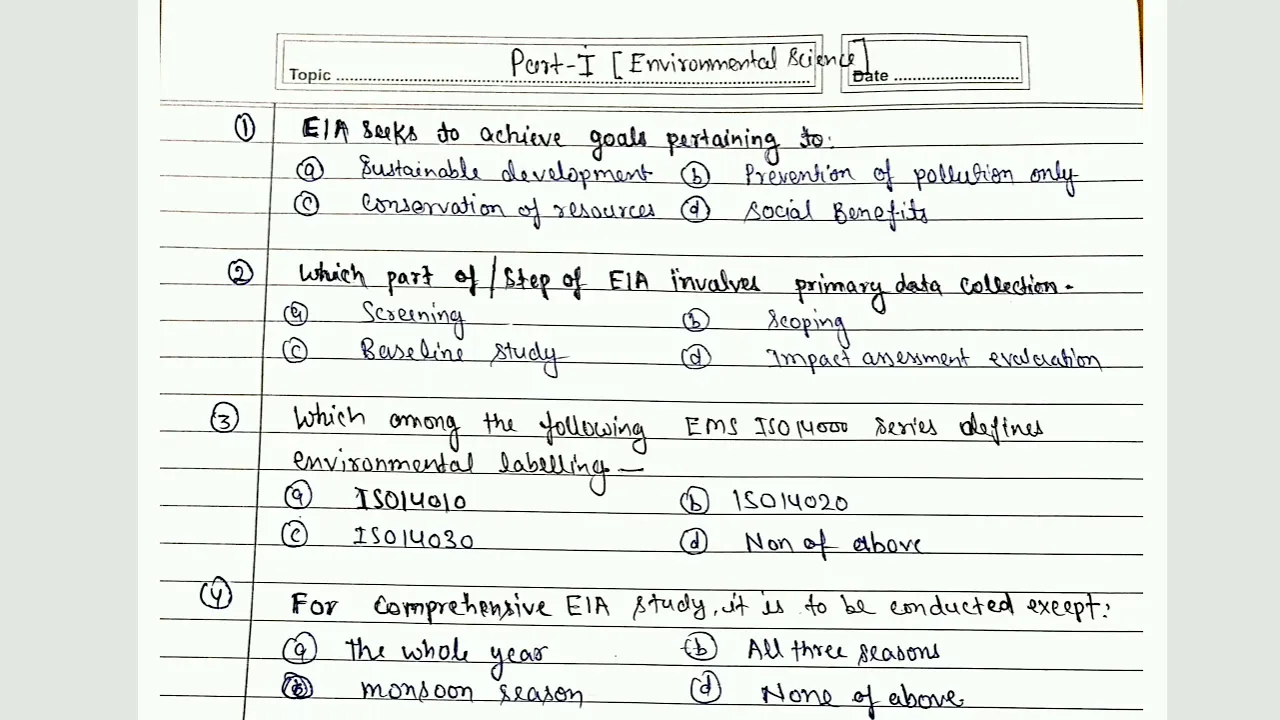 Topic ........ Part-I [Environmental Science] Date ........
① EIA seeks to achieve goals pertaining to:
ⓐ Sustainable development ⓑ Prevention of pollution only
ⓒ Conservation of resources ⓓ Social Benefits
② Which part of/Step of EIA involves primary data collection.
ⓐ Screening ⓑ Scoping
ⓒ Baseline study ⓓ Impact assessment evaluation
③ Which among the following EMS ISO14000 series defines
environmental labelling. —
ⓐ ISO14010 ⓑ ISO14020
ⓒ ISO14030 ⓓ Non of above
④ For Comprehensive EIA study, it is to be conducted except:
ⓐ the whole year ⓑ All three seasons
ⓒ monsoon season ⓓ None of above.